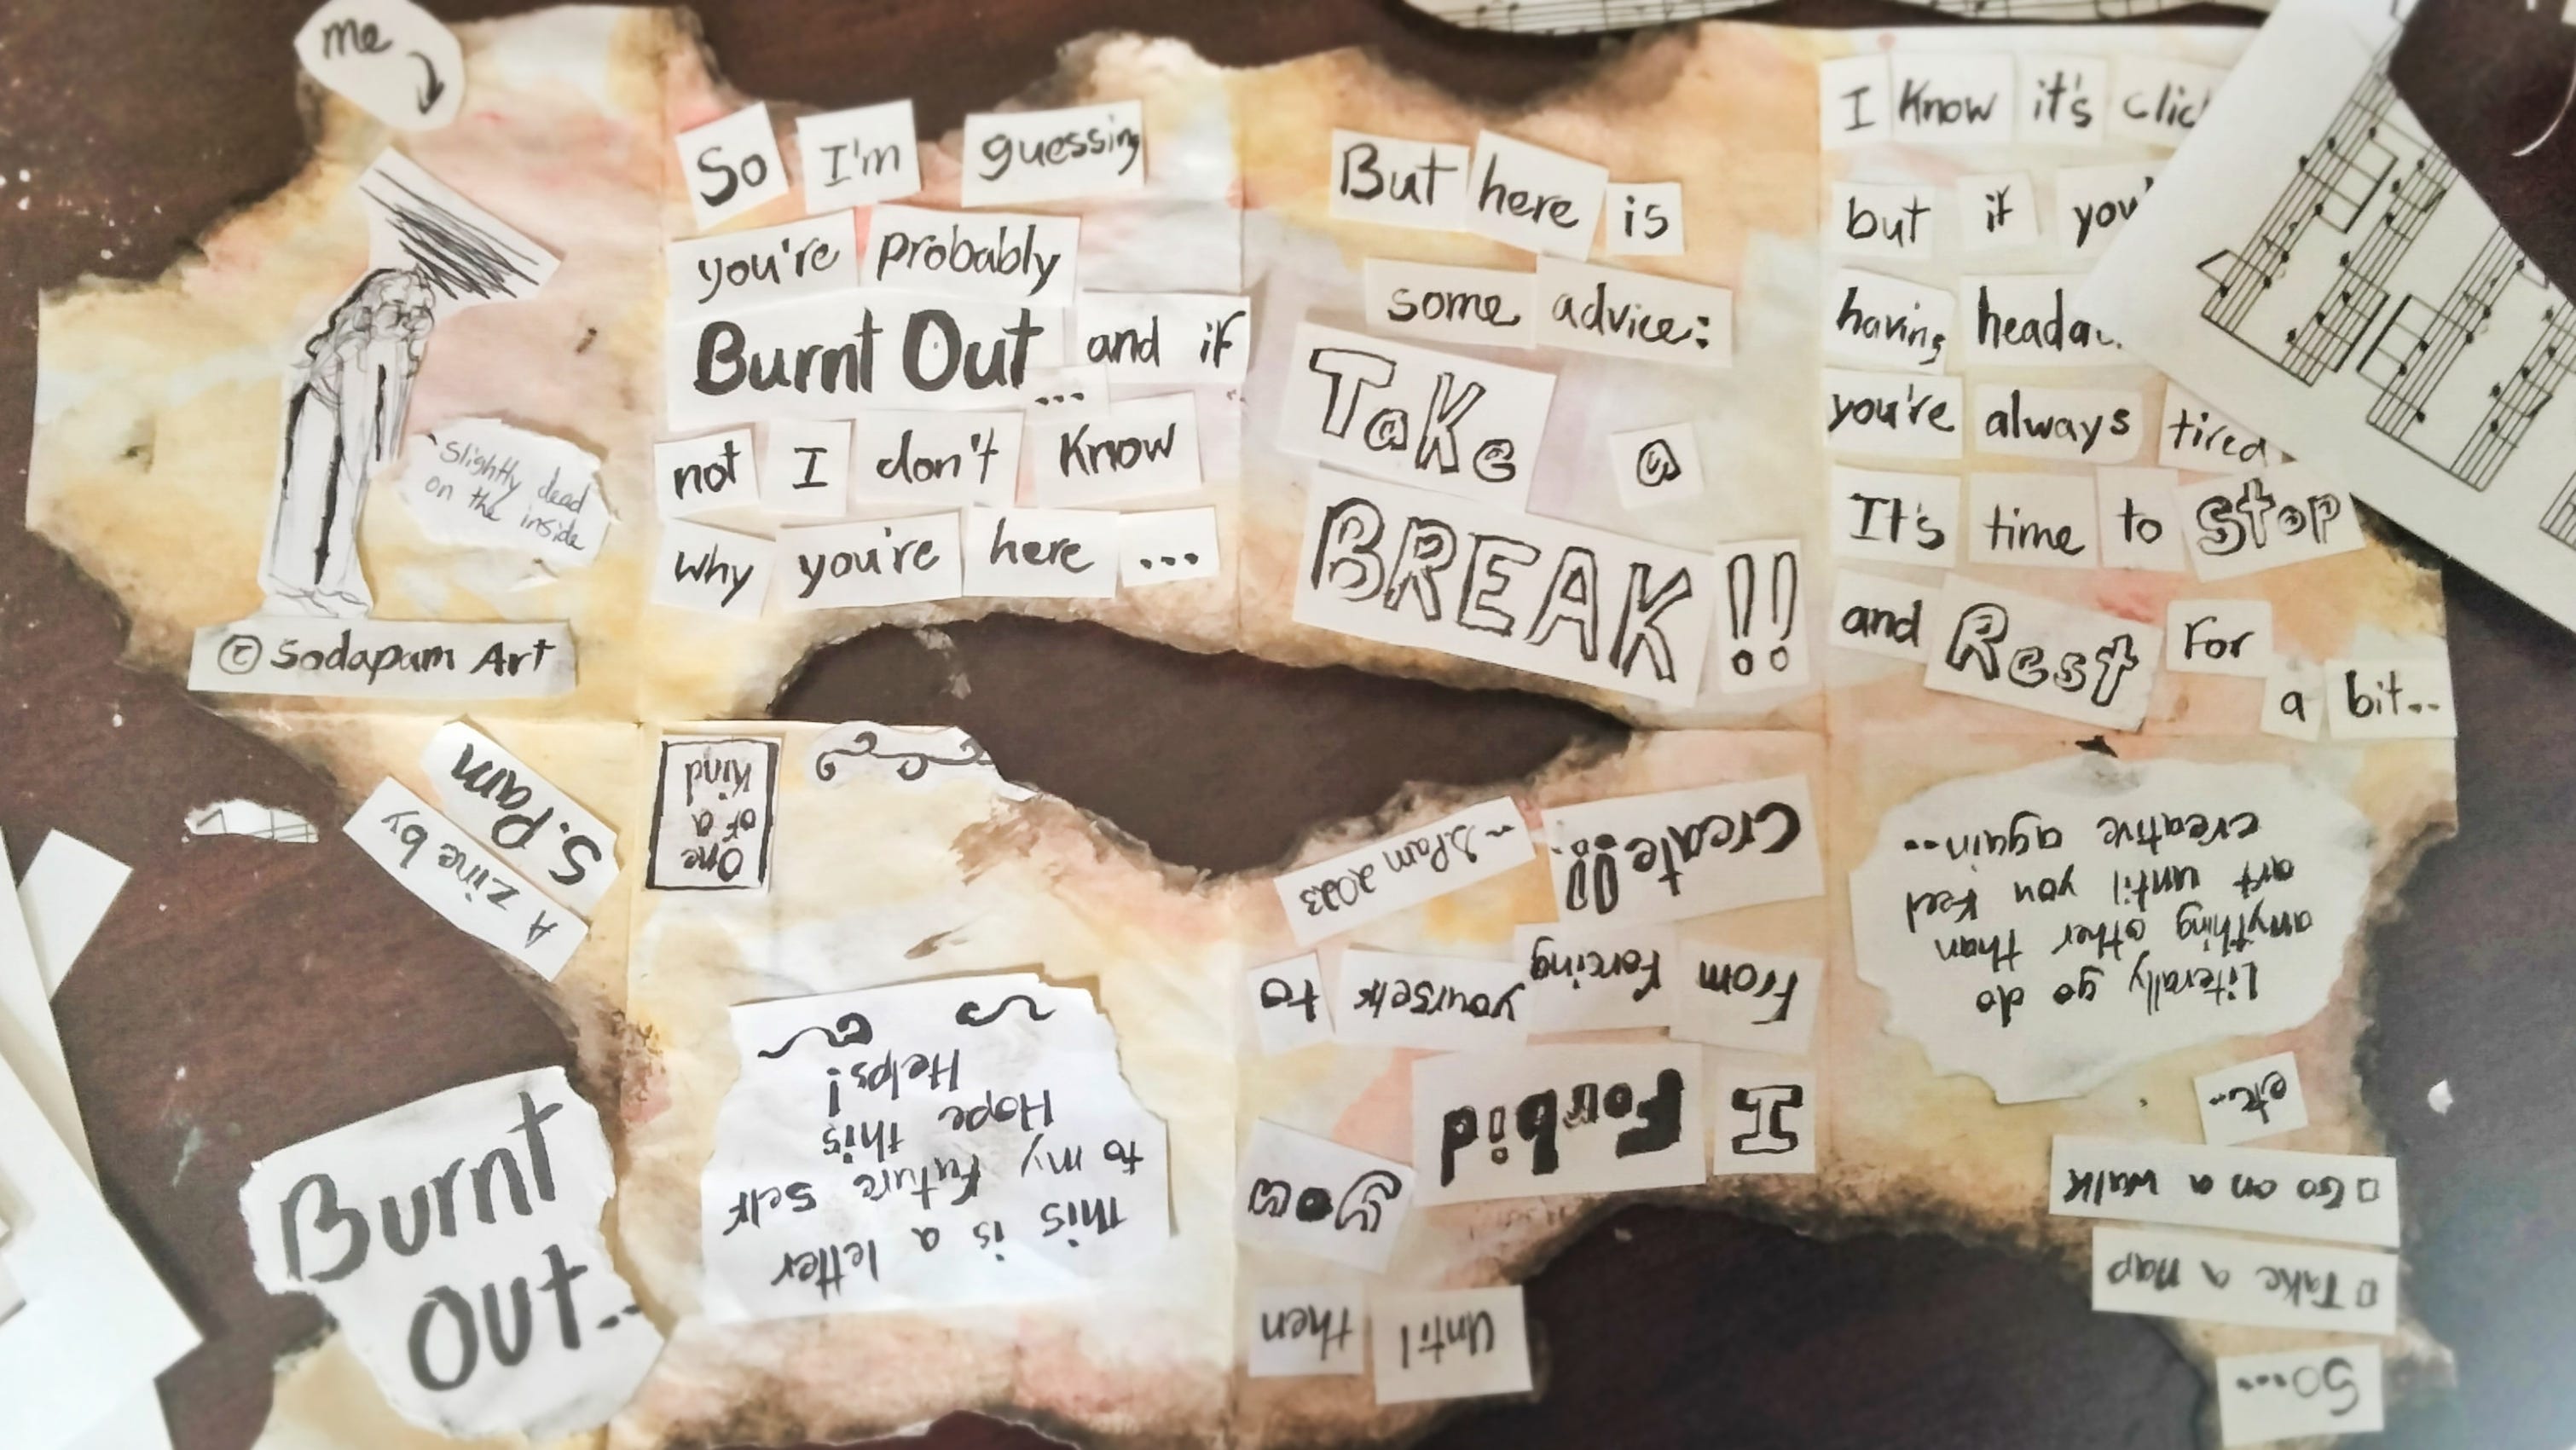 me
slightly dead
on the inside
© Sodapam Art
So I'm guessing
you're probably
Burnt Out... and if
not I don't know
why you're here ...
But here is
some advice:
TaKe a
BREAK!!
I Know it's
but if
having
you're always tired
It's time to Stop
and Rest For
a bit...
Burnt
Out...
A zine by
S. Pam
This is a letter
to my future self
Hope this
Helps!
One
of a
Kind
So....
□ Take a nap
□ Go on a walk
etc..
Literally go do
anything other than
art until you feel
creative again...
Until then
I Forbid you
From Forcing yourself to
Create!!
~S.Pam 2023